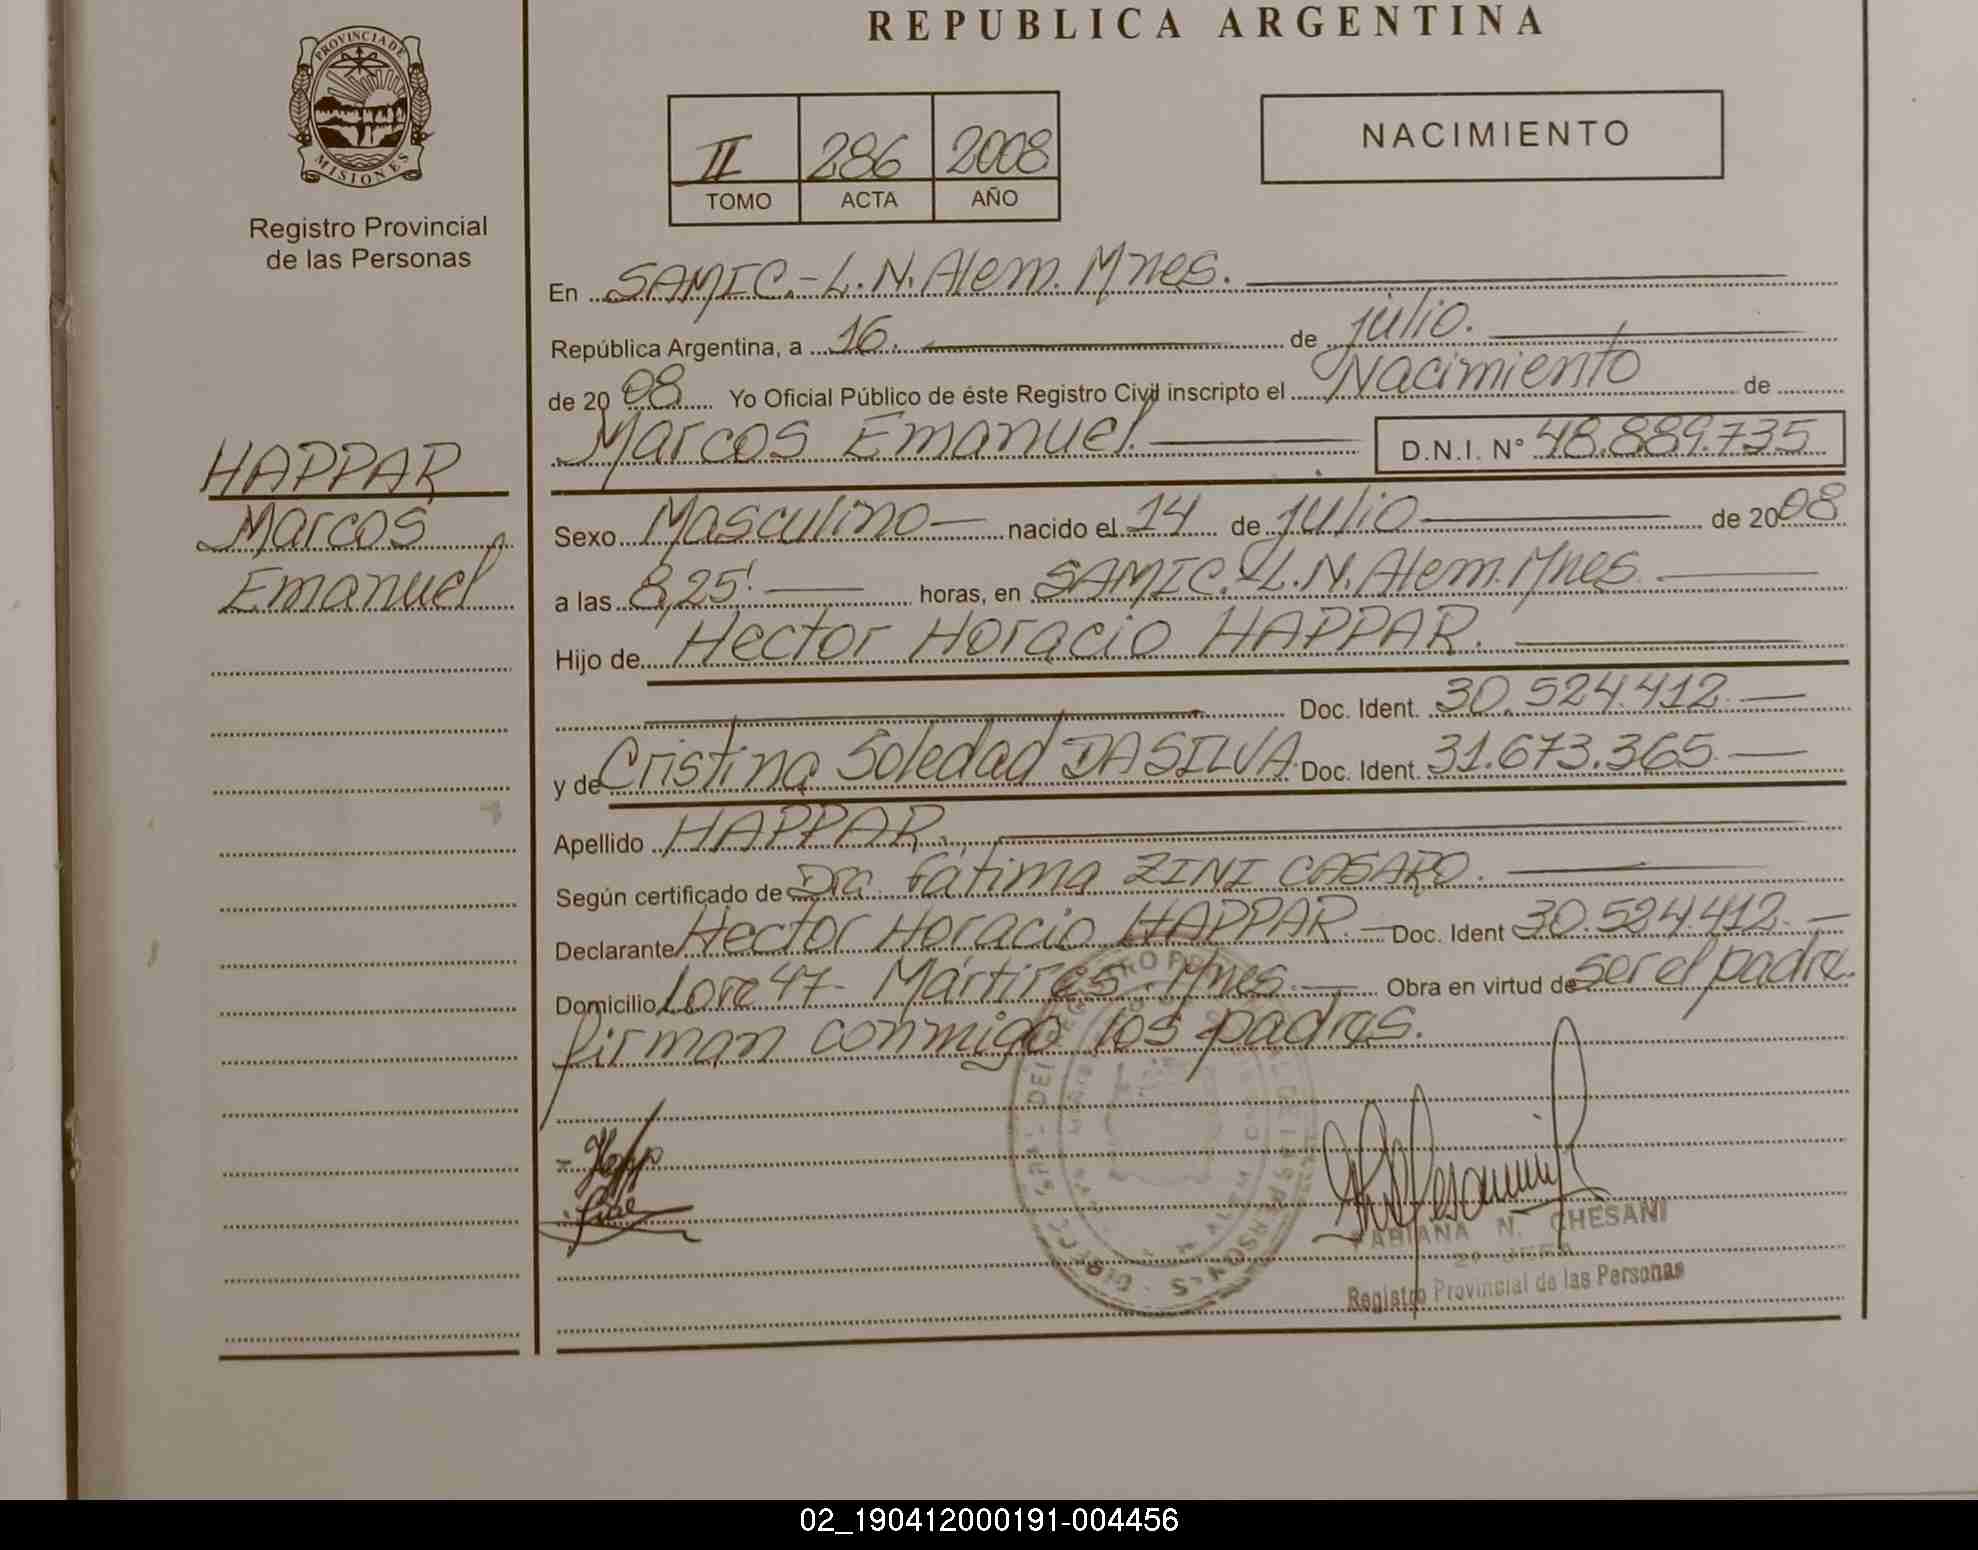 REPUBLICA ARGENTINA
PROVINCIA DE
MISIONES
Registro Provincial
de las Personas
II 286 2008
TOMO ACTA AÑO
NACIMIENTO
En SAMIC.-L.N.Alem.Mnes.
República Argentina, a 16. de julio.
de 2008 Yo Oficial Público de éste Registro Civil inscripto el Nacimiento de
Marcos Emanuel. D.N.I. N° 48.889.735
HAPPAR
Marcos
Emanuel
Sexo Masculino nacido el 14 de julio de 2008
a las 8,25' horas, en SAMIC.-L.N.Alem.Mnes.
Hijo de Hector Horacio HAPPAR.
Doc. Ident. 30.524.412.-
y de Cristina Soledad DA SILVA. Doc. Ident. 31.673.365.-
Apellido HAPPAR.
Según certificado de Dra. Fátima ZINI CASARO.
Declarante Hector Horacio HAPPAR.- Doc. Ident 30.524.412.-
Domicilio Lote 47- Mártires. Mnes.- Obra en virtud de ser el padre.
firman conmigo los padres.
FABIANA N. CHESANI
Registro Provincial de las Personas
02_190412000191-004456